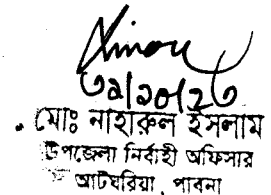 মোঃ নাহারুল ইসলাম
উপজেলা নির্বাহী অফিসার
আটঘরিয়া, পাবনা